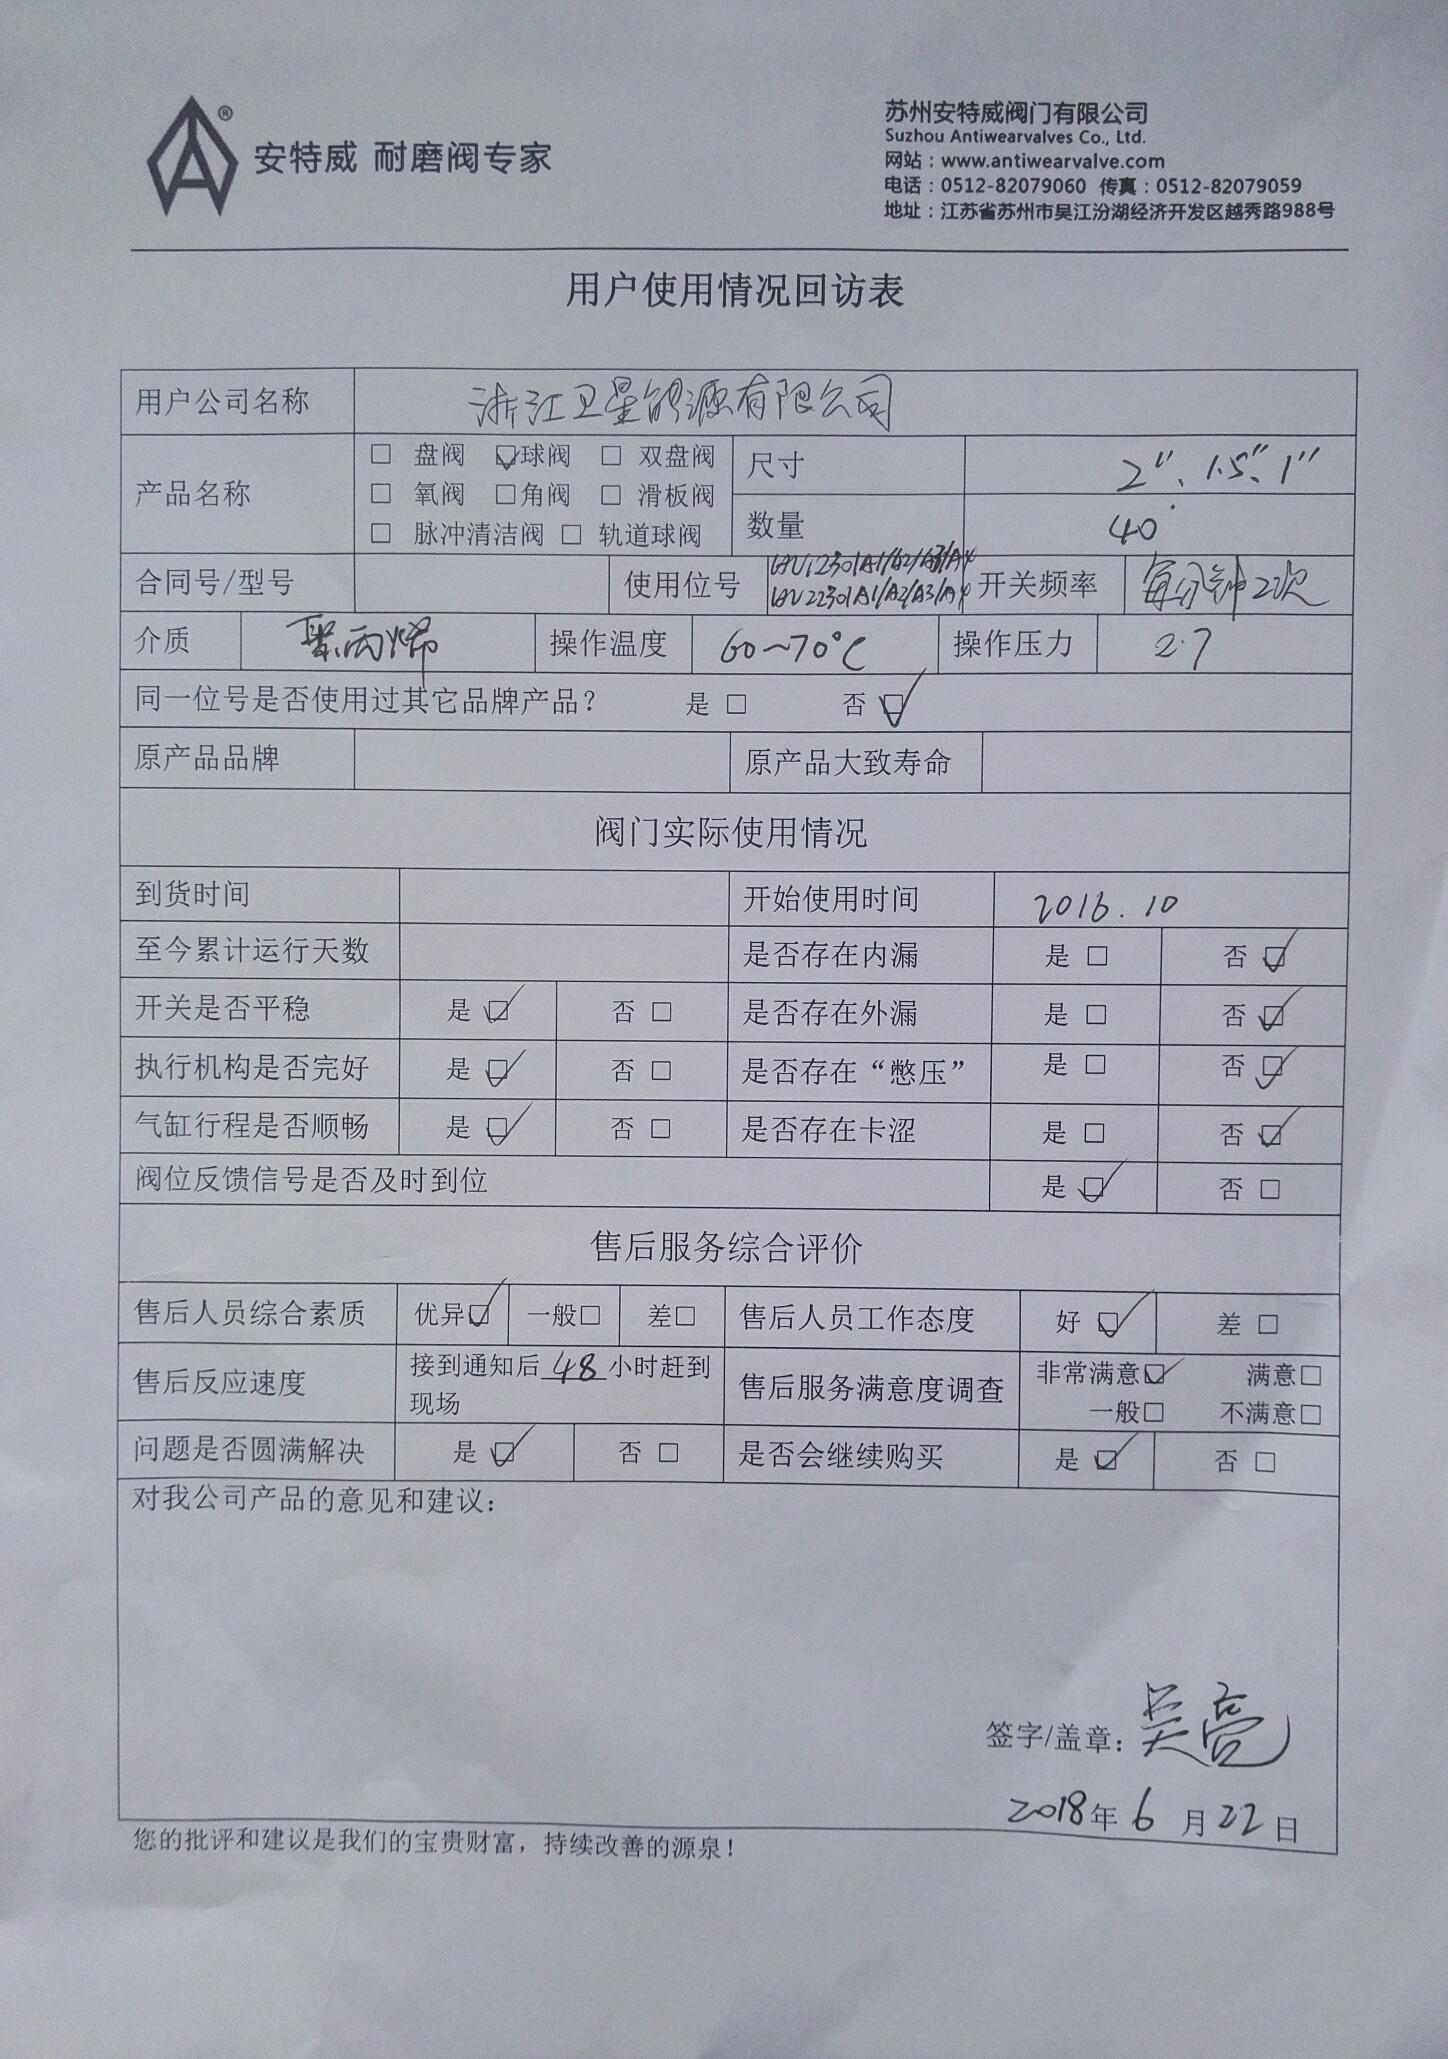 ®
安特威 耐磨阀专家
苏州安特威阀门有限公司
Suzhou Antiwearvalves Co., Ltd.
网站：www.antiwearvalve.com
电话：0512-82079060 传真：0512-82079059
地址：江苏省苏州市吴江汾湖经济开发区越秀路988号
用户使用情况回访表
用户公司名称 浙江卫星能源有限公司
产品名称
□ 盘阀 ☑球阀 □ 双盘阀
□ 氧阀 □角阀 □ 滑板阀
□ 脉冲清洁阀 □ 轨道球阀
尺寸 2"、1.5"、1"
数量 40
合同号/型号 使用位号 开关频率 每分钟2次
介质 聚丙烯 操作温度 60~70℃ 操作压力 2.7
同一位号是否使用过其它品牌产品？ 是 □ 否 ☑
原产品品牌 原产品大致寿命
阀门实际使用情况
到货时间 开始使用时间 2016.10
至今累计运行天数 是否存在内漏 是 □ 否 ☑
开关是否平稳 是 ☑ 否 □ 是否存在外漏 是 □ 否 ☑
执行机构是否完好 是 ☑ 否 □ 是否存在“憋压” 是 □ 否 ☑
气缸行程是否顺畅 是 ☑ 否 □ 是否存在卡涩 是 □ 否 ☑
阀位反馈信号是否及时到位 是 ☑ 否 □
售后服务综合评价
售后人员综合素质 优异☑ 一般□ 差□ 售后人员工作态度 好 ☑ 差 □
售后反应速度 接到通知后 48 小时赶到
现场
售后服务满意度调查 非常满意☑ 满意□
一般□ 不满意□
问题是否圆满解决 是 ☑ 否 □ 是否会继续购买 是 ☑ 否 □
对我公司产品的意见和建议：
签字/盖章：吴亮
2018年 6 月 22 日
您的批评和建议是我们的宝贵财富，持续改善的源泉！